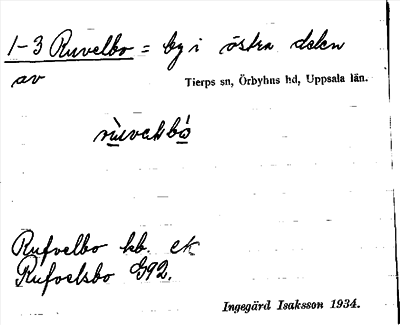 1-3 Ruvelbo = by i östra delen
av Tierps sn, Örbyhus hd, Uppsala län.
Rufvelbo kb. ek
Rufvelsbo 692.
Ingegärd Isaksson 1934.